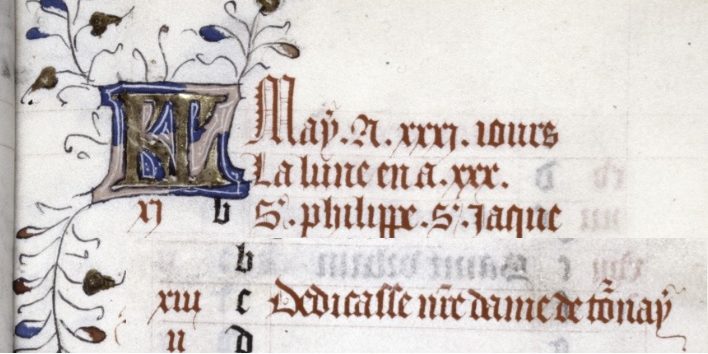 KL May. A. xxxi. iours
La lune en a. xxx.
xi b S'. philippe. S'. Jaque
b
xiii c Dedicasse nr̄e dame de tōnay
ii d